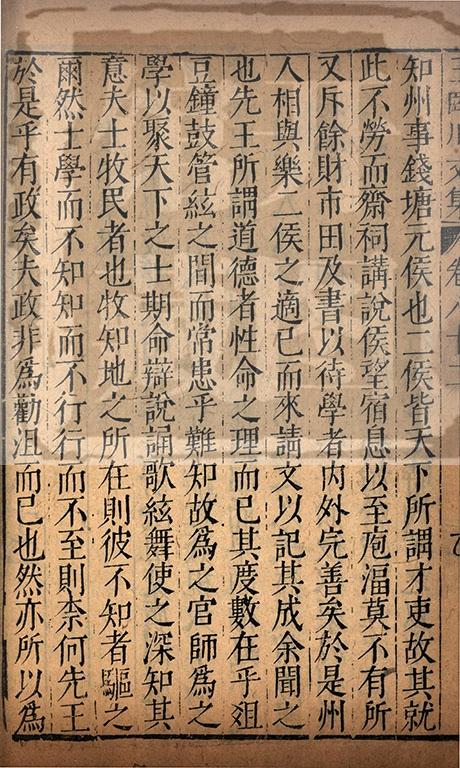 王臨川文集 卷八十二
知州事錢塘元侯也二侯皆天下所謂才吏故其就
此不勞而齋祠講說侯望宿息以至庖湢莫不有所
又斥餘財市田及書以待學者內外完善矣於是州
人相與樂二侯之適已而來請文以記其成余聞之
也先王所謂道德者性命之理而已其度數在乎俎
豆鐘鼓管絃之間而常患乎難知故爲之官師爲之
學以聚天下之士期命辯說誦歌絃舞使之深知其
意夫士牧民者也牧知地之所在則彼不知者驅之
爾然士學而不知知而不行行而不至則柰何先王
於是乎有政矣夫政非爲勸沮而已也然亦所以爲